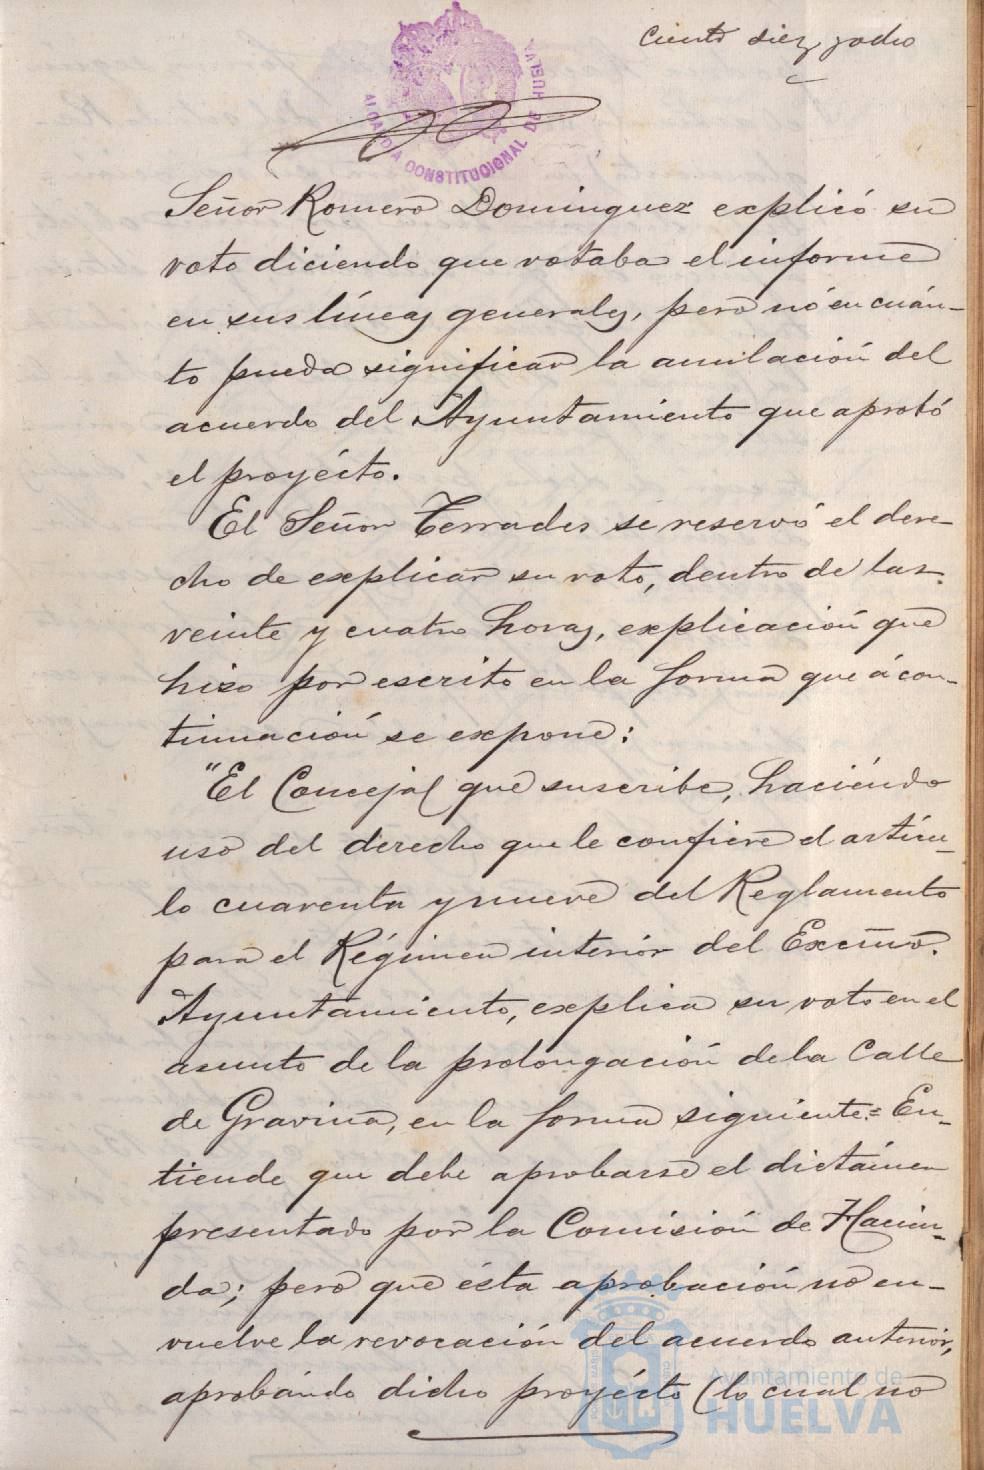 Ciento diez y ocho
ALCALDIA CONSTITUCIONAL DE HUELVA
Señor Romero Dominguez explicó su
voto diciendo que votaba el informe
en sus líneas generales, pero nó en cuán-
to pueda significar la anulación del
acuerdo del Ayuntamiento que aprobó
el proyécto.
El Señor Terrades se reservó el dere-
cho de explicar su voto, dentro de las
veinte y cuatro horas, explicación que
hizo por escrito en la forma que á con-
tinuación se expone:
"El Concejal que suscribe, haciéndo
uso del derecho que le confiere el artícu-
lo cuarenta y nueve del Reglamento
para el Régimen interior del Excmo.
Ayuntamiento, explica su voto en el
asunto de la prolongación de la Calle
de Gravina, en la forma siguiente:= En-
tiende que debe aprobarse el dictámen
presentado por la Comisión de Hacien-
da; pero que ésta aprobación no en-
vuelve la revocación del acuerdo anterior,
aprobándo dicho proyécto (lo cual no
Ayuntamiento de
HUELVA